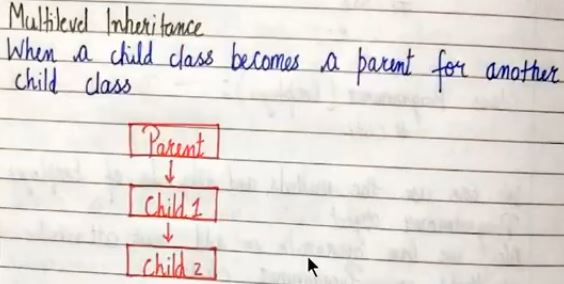 Multilevel Inheritance
When a child class becomes a parent for another
child class
Parent
Child 1
Child 2